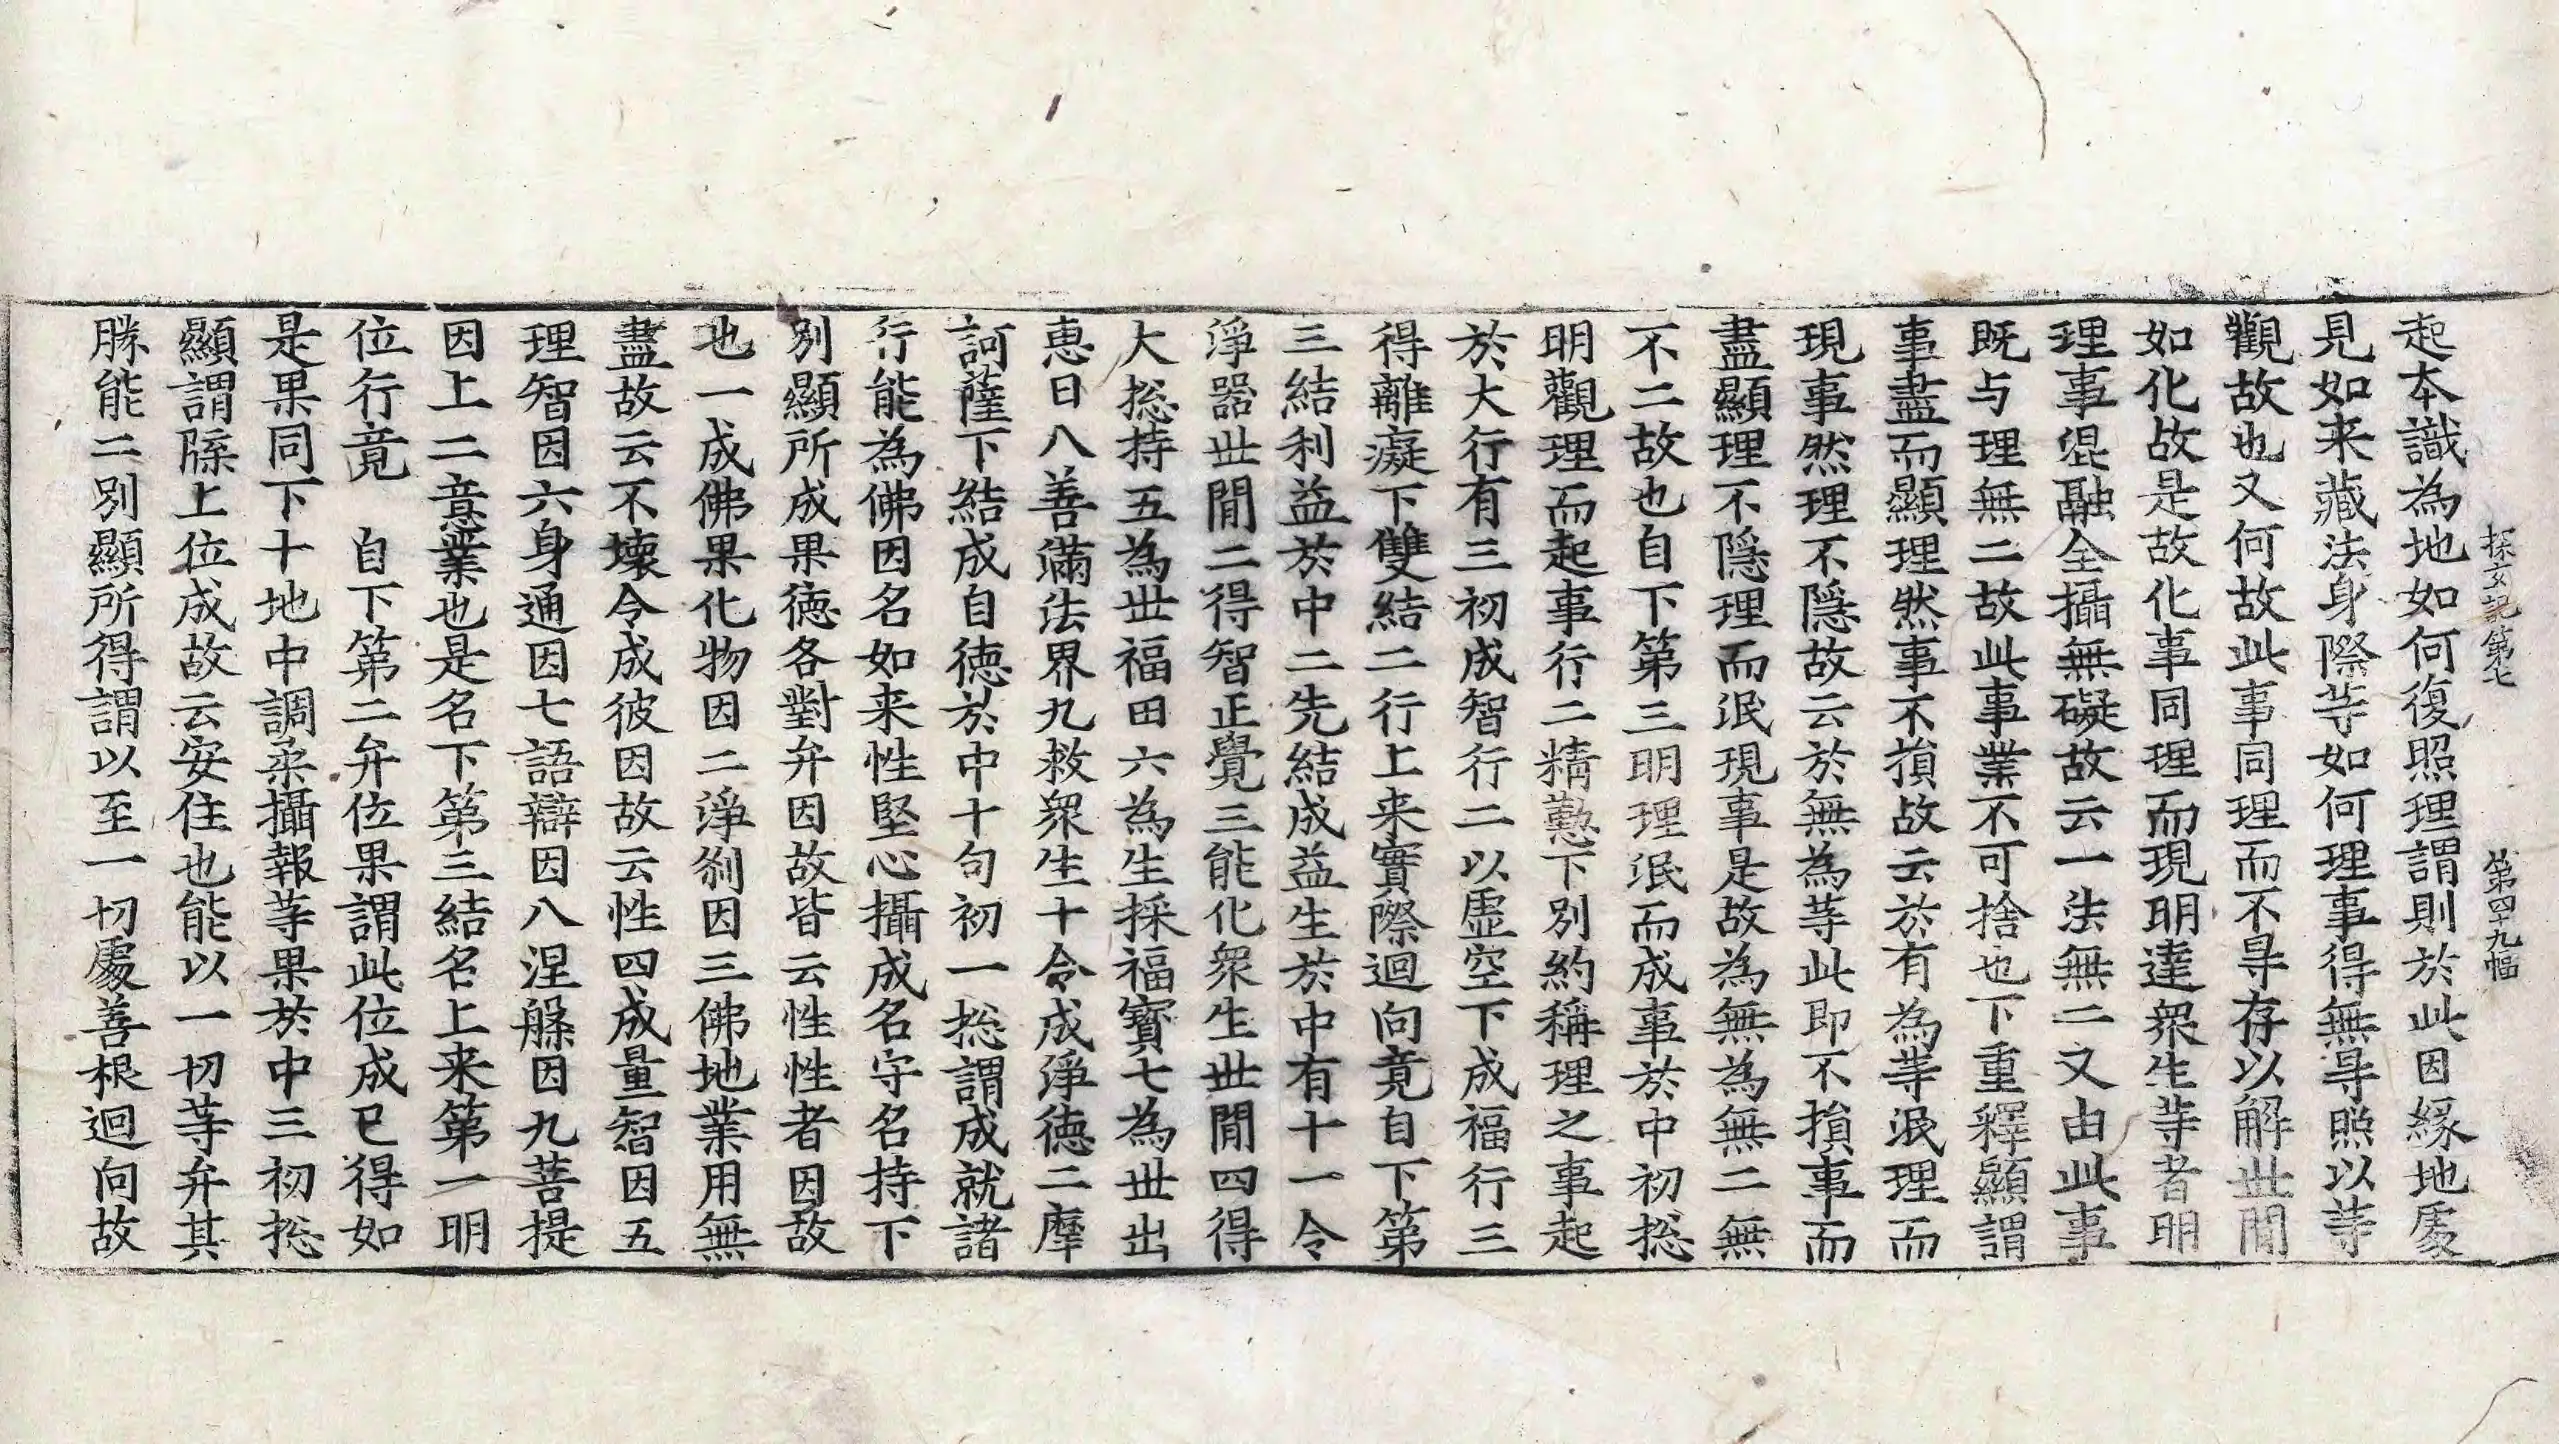 探玄記第七　第四十九幅
起本識為地如何復照理謂則於此因緣地處
見如来藏法身際等如何理事得無㝵照以䓁
觀故也又何故此事同理而不㝵存以解世間
如化故是故化事同理而現明達眾生䓁者明
理事混融全攝無礙故云一法無二又由此事
既与理無二故此事業不可捨也下重釋顯謂
事盡而顯理然事不損故云於有為䓁泯理而
現事然理不隱故云於無為䓁此即不損事而
盡顯理不隱理而泯現事是故為無為無二無
不二故也自下第三明理泯而成事於中初揔
明觀理而起事行二精懃下別約稱理之事起
於大行有三初成智行二以虛空下成福行三
得離癡下雙結二行上来實際迴向竟自下第
三結利益於中二先結成益生於中有十一令
淨器世間二得智正覺三能化眾生世間四得
大揔持五為世福田六為生採福寶七為世出
惠日八善滿法界九救眾生十令成淨德二摩
訶薩下結成自德於中十句初一揔謂成就諸
行能為佛因名如来性堅心攝成名守名持下
別顯所成果德各對弁因故皆云性性者因故
也一成佛果化物因二淨剎因三佛地業用無
盡故云不壞令成彼因故云性四成量智因五
理智因六身通因七語辯因八涅槃因九菩提
因上二意業也是名下第三結名上来第一明
位行竟　自下第二弁位果謂此位成已得如
是果同下十地中調柔攝報䓁果於中三初揔
顯謂隊上位成故云安住也能以一切䓁弁其
勝能二別顯所得謂以至一切處善根迴向故